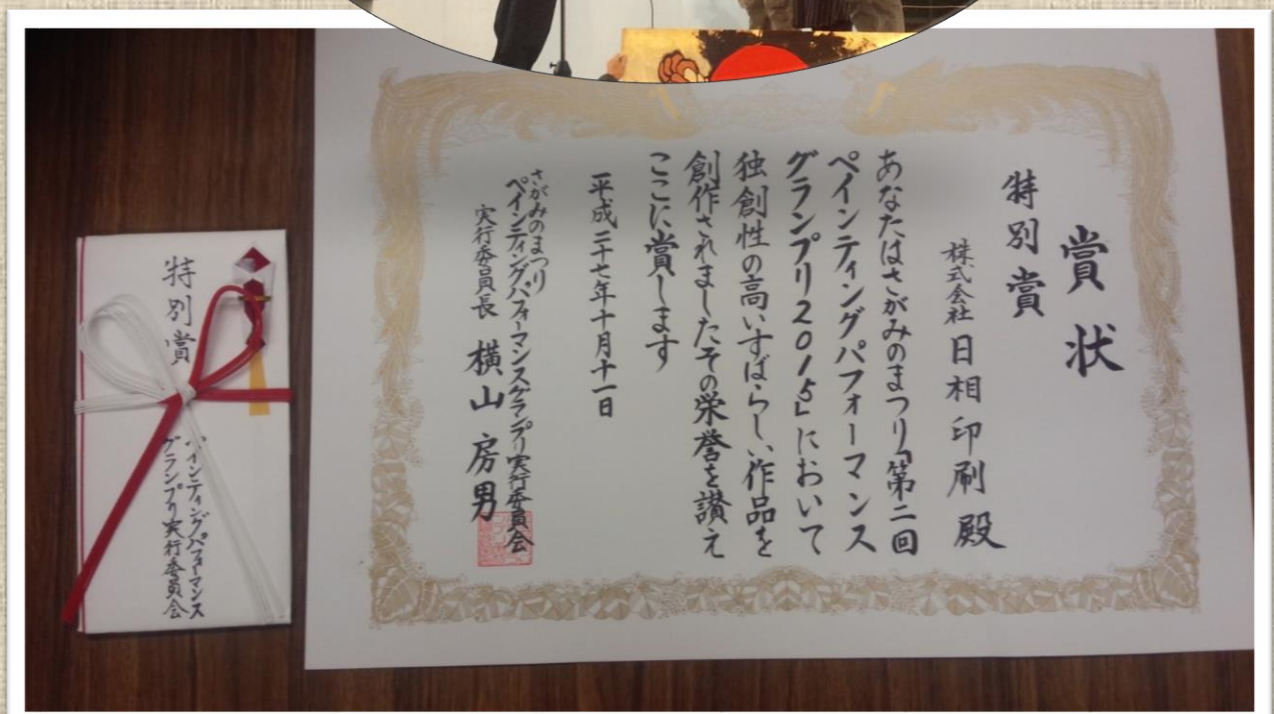 賞状
特別賞
株式会社 日相印刷 殿
あなたはさがみのまつり「第二回
ペインティングパフォーマンス
グランプリ2015」において
独創性の高いすばらしい作品を
創作されましたその栄誉を讃え
ここに賞します
平成二十七年十月十一日
さがみのまつり
ペインティングパフォーマンスグランプリ実行委員会
実行委員長 横山房男
特別賞
ペインティングパフォーマンス
グランプリ実行委員会